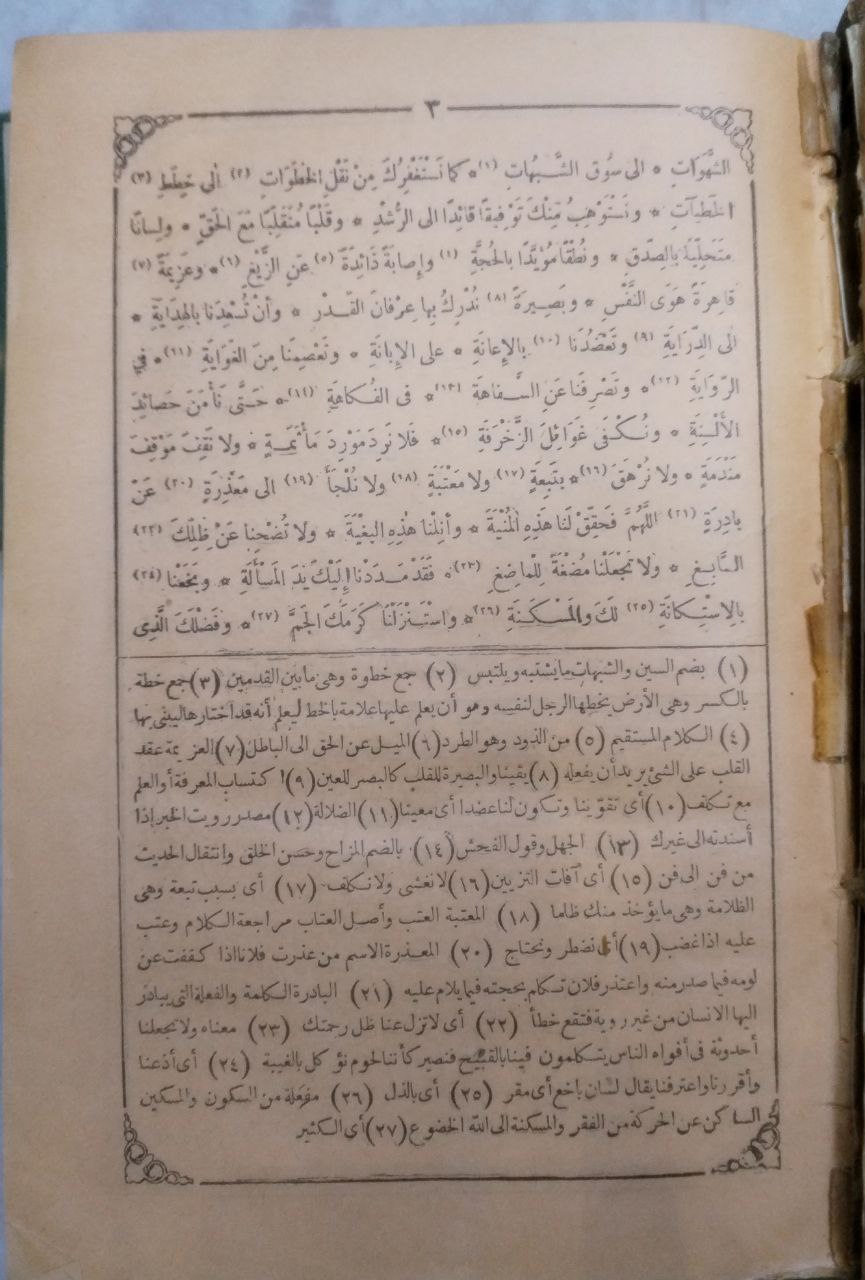 ٣
الشَّهَوَاتِ * الى سُوقِ الشُّبُهَاتِ (١)* كما نَسْتَغْفِرُكَ مِنْ نَقْلِ الخُطُوَاتِ (٢) الى خِطَطِ (٣)
الخَطِيآتِ * ونَسْتَوْهِبُ مِنْكَ تَوْفِيقًا قائِدًا الى الرُّشْدِ * وقَلْبًا مُتَقَلِّبًا مَعَ الحَقِّ * ولِسانًا
مُتَحَلِّيًا بالصِّدْقِ * ونُطْقًا مُؤَيَّدًا بالحُجَّةِ (٤) وإصابَةً ذَائِدَةً (٥) عَنِ الزَّيْغِ (٦)* وعَزِيمَةً (٧)
قاهِرَةً هَوَى النَّفْسِ * وبَصِيرَةً (٨) نُدْرِكُ بِها عِرْفانَ القَدْرِ * وأنْ تُسْعِدَنا بالهِدَايَةِ *
الى الدِّرَايَةِ (٩) وتَعْضُدَنا (١٠) بالإعانَةِ * على الإبانَةِ * وتَعْصِمَنا مِنَ الغَوَايَةِ (١١)* في
الرِّوَايَةِ (١٢)* وتَصْرِفَنا عَنِ السَّفاهَةِ (١٣)* في الفُكاهَةِ (١٤)* حَتَّى نَأْمَنَ حَصائِدَ
الأَلْسِنَةِ * ونُكْفَى غَوَائِلَ الزَّخْرَفَةِ (١٥)* فَلا نَرِدَ مَوْرِدَ مَأْثَمَةٍ * ولا نَقِفَ مَوْقِفَ
مَنْدَمَةٍ * ولا نُرْهَقَ (١٦)* بِتَبِعَةٍ (١٧) ولا مَعْتَبَةٍ (١٨) ولا نُلْجَأَ (١٩) الى مَعْذِرَةٍ (٢٠) عَنْ
بادِرَةٍ (٢١) اللَّهُمَّ فَحَقِّقْ لَنا هَذِهِ المُنْيَةَ * وأنِلْنا هَذِهِ البِغْيَةَ * ولا تُضْحِنا عَنْ ظِلِّكَ (٢٢)
السَّابِغِ * ولا تَجْعَلْنا مُضْغَةً لِلْماضِغِ (٢٣)* فَقَدْ مَدَدْنا إلَيْكَ يَدَ المَسْأَلَةِ * وبَخَعْنا (٢٤)
بالِاسْتِكانَةِ (٢٥) لَكَ والمَسْكَنَةِ (٢٦)* واسْتَنْزَلْنا كَرَمَكَ الجَمَّ (٢٧)* وفَضْلَكَ الَّذِى
(١) بضم السين والشبهات مايشتبه ويلتبس (٢) جمع خطوة وهى ما بين القدمين (٣) جمع خطة
بالكسر وهى الأرض يختطها الرجل لنفسه وهو أن يعلم عليها علامة بالخط ليعلم أنه قد اختارها ليبنى بها
(٤) الكلام المستقيم (٥) من الذود وهو الطرد (٦) الميل عن الحق الى الباطل (٧) العزيمة عقد
القلب على الشئ يريد أن يفعله (٨) يقينا والبصيرة للقلب كالبصر للعين (٩) اكتساب المعرفة أو العلم
مع تكلف (١٠) أى تقوّيننا وتكون لنا عضدا أى معينا (١١) الضلالة (١٢) مصدر رويت الخبر إذا
أسندته الى غيرك (١٣) الجهل وقول الفحش (١٤) بالضم المزاح وحسن الخلق وانتقال الحديث
من فن الى فن (١٥) أى آفات التزيين (١٦) لا نغشى ولا نكلف (١٧) أى بسبب تبعة وهى
الظلامة وهى ما يؤخذ منك ظلما (١٨) المعتبة العتب وأصل العتاب مراجعة الكلام وعتب
عليه اذا غضب (١٩) أى نضطر ونحتاج (٢٠) المعذرة الاسم من عذرت فلانا اذا كففت عن
لومه فيما صدر منه واعتذر فلان تكلم بحجته فيما يلام عليه (٢١) البادرة الكلمة والفعلة التى يبادر
اليها الانسان من غير روية فتقع خطأ (٢٢) أى لا تزل عنا ظل رحمتك (٢٣) معناه ولا تجعلنا
أحدوثة فى أفواه الناس يتكلمون فينا بالقبيح فنصير كأننا لحوم نؤكل بالغيبة (٢٤) أى أذعنا
وأقررنا واعترفنا يقال لسان باخع أى مقر (٢٥) أى بالذل (٢٦) مفعلة من السكون والمسكين
الساكن عن الحركة من الفقر والمسكنة الى الله الخضوع (٢٧) أى الكثير